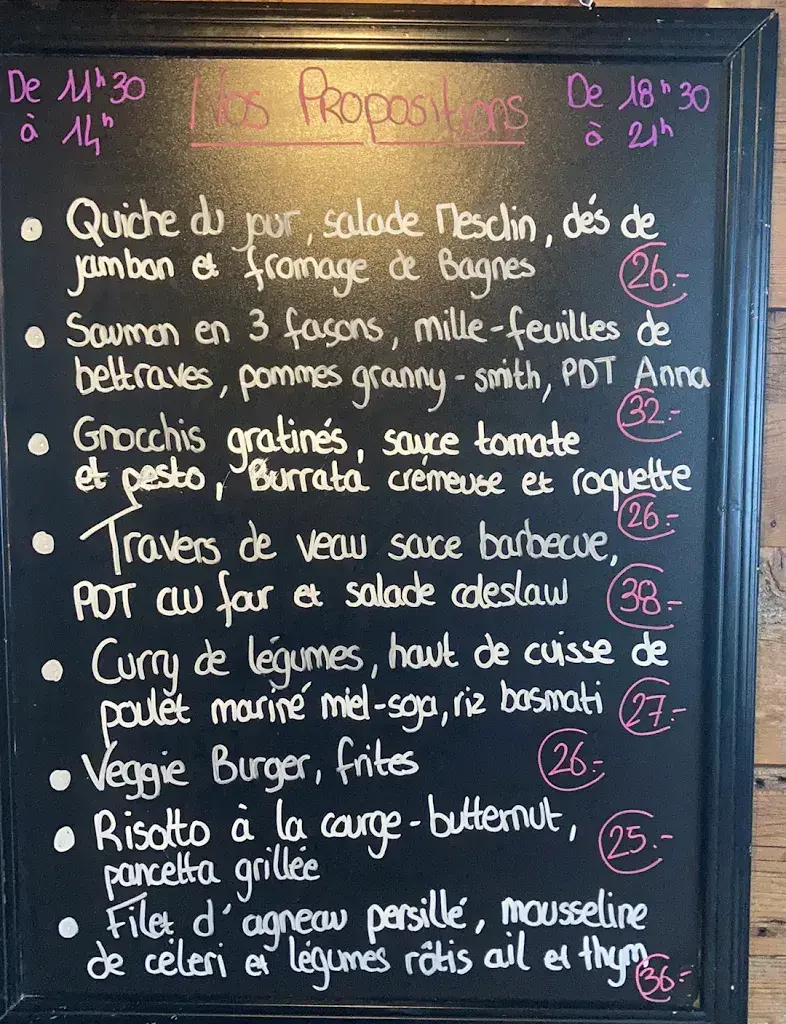 De 11h30
à 14h
Nos Propositions
De 18h30
à 21h
• Quiche du jour, salade Mesclin, dés de
jambon et fromage de Bagnes
26.-
• Saumon en 3 façons, mille-feuilles de
bettraves, pommes granny-smith, PDT Anna
32.-
• Gnocchis gratinés, sauce tomate
et pesto, Burrata crémeuse et roquette
26.-
• Travers de veau sauce barbecue,
PDT au four et salade coleslaw 38.-
• Curry de légumes, haut de cuisse de
poulet mariné miel-soja, riz basmati 27.-
• Veggie Burger, frites 26.-
• Risotto à la courge-butternut, 25.-
pancetta grillée
• Filet d'agneau persillé, mousseline
de céleri et légumes rôtis ail et thym 36.-